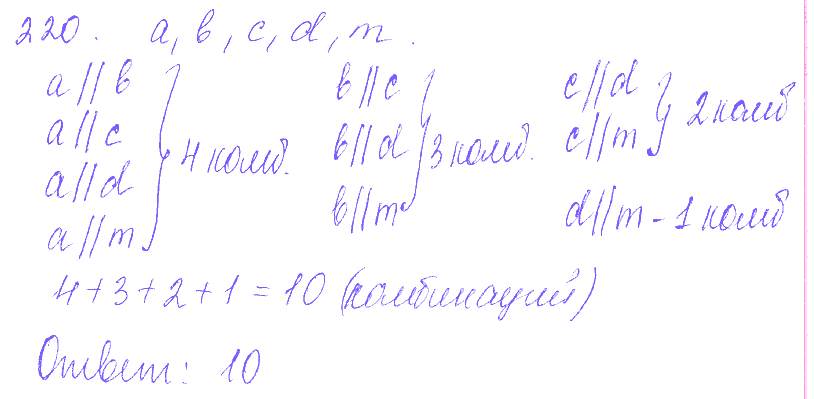 220. a, b, c, d, m.
a//b b//c c//d
a//c 4 комб. b//d 3 комб. c//m 2 комб
a//d b//m d//m - 1 комб
a//m
4+3+2+1=10 (комбинаций)
Ответ: 10